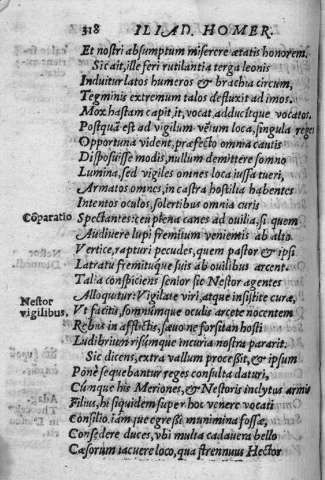 318 ILIAD. HOMER.
Et nostri absumptum miserere ætatis honorem.
Sic ait, ille feri rutilantia terga leonis
Induitur latos humeros & brachia circum,
Tegminis extremum talos defluxit ad imos.
Mox hastam capit, it, vocat, adducitque vocatos.
Postquã est ad vigilum vẽrum loca, singula reges
Opportuna vident, præfecto omnia cautis
Disposuisse modis, nullum demittere somno
Lumina, sed vigiles omnes loca iussa tueri,
Armatos omnes, in castra hostilia habentes
Intentos oculos, solertibus omnia curis
Cõparatio Spectantes: ceu plena canes ad ovilia, si quem
Audivere lupi fremitum venientis ab alto
Vertice, rapturi pecudes, quem pastor & ipsi
Latratu fremituque suis ab ovilibus arcent.
Talia conspiciens senior sic Nestor agentes
Nestor vigilibus. Alloquitur: Vigilate viri, atque insistite curæ,
Ut facitis, somnumque oculis arcete nocentem
Rebus in afflictis, sævo ne forsitan hosti
Ludibrium risumque incuria nostra pararit.
Sic dicens, extra vallum processit, & ipsum
Ponè sequebantur reges consulta daturi,
Cumque his Meriones, & Nestoris inclytus armis
Filius, hi siquidem super hoc venere vocati
Consilio. iam que egressi munimina fossæ,
Consedere duces, vbi multa cadavera bello
Cæsorum iacuere loco, qua strennuus Hector